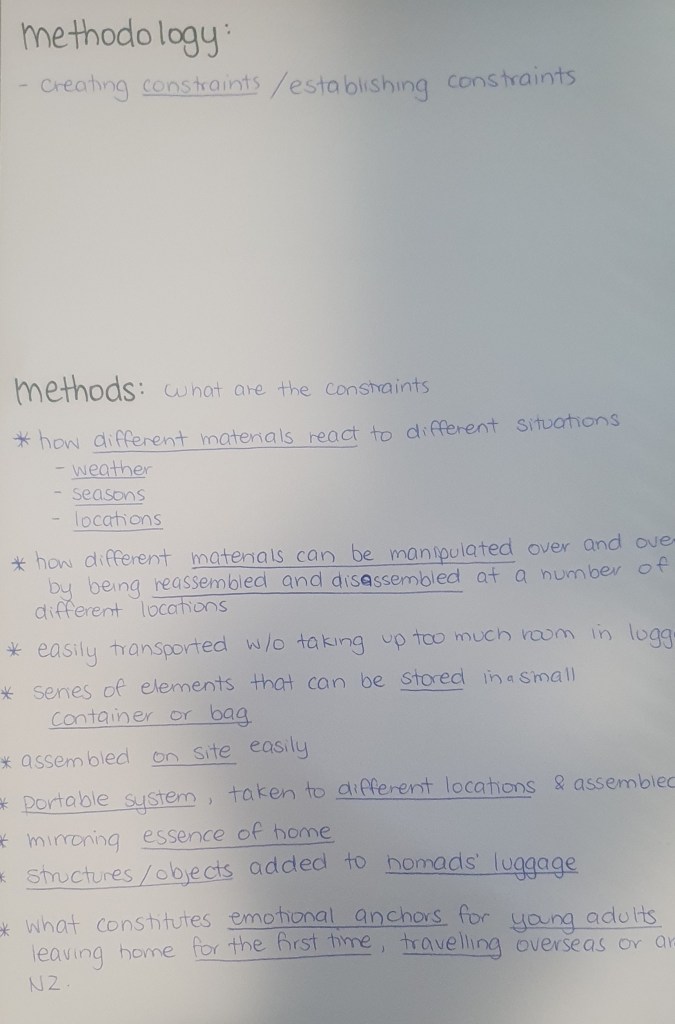 methodology:
- creating constraints / establishing constraints
methods: what are the constraints
* how different materials react to different situations
- weather
- seasons
- locations
* how different materials can be manipulated over and ove
by being reassembled and disassembled at a number of
different locations
* easily transported w/o taking up too much room in lugg
* series of elements that can be stored in a small
container or bag
* assembled on site easily
* portable system, taken to different locations & assembled
* mirroring essence of home
* structures/objects added to nomads' luggage
* what constitutes emotional anchors for young adults
leaving home for the first time, travelling overseas or ar
NZ.